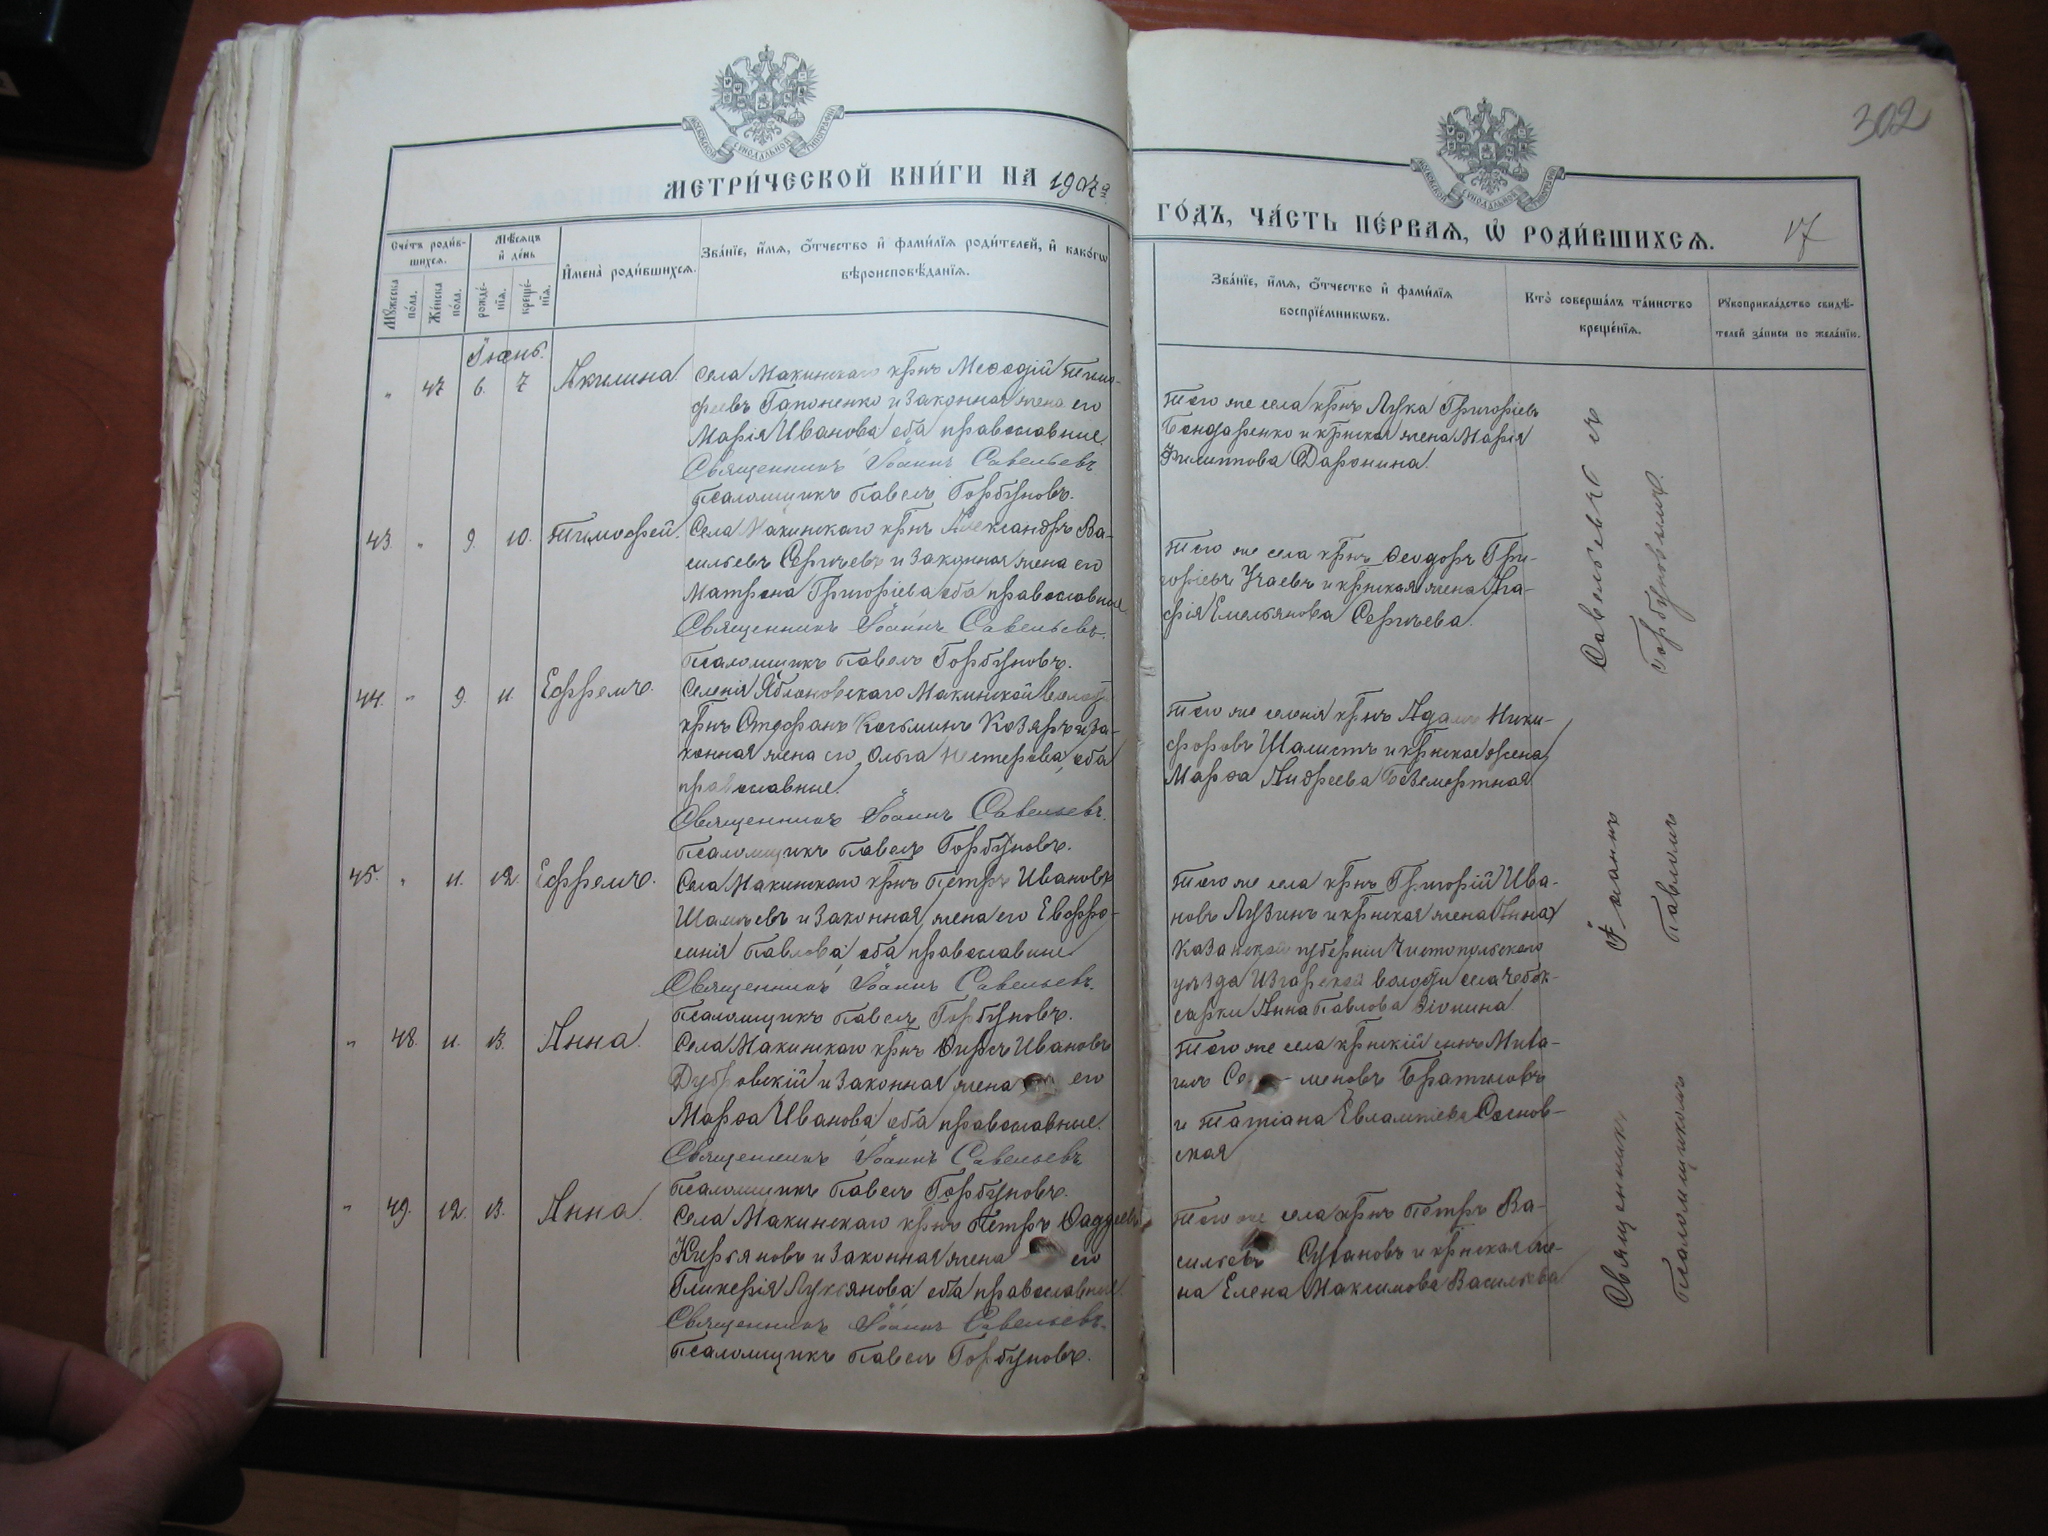 302
МЕТРИ́ЧЕСКОЙ КНИ́ГИ НА 1907й
ГО́ДЪ, ЧА́СТЬ ПЕ́РВАЯ, Ѽ РОДИ́ВШИХСЯ.
17
Сче́тъ роди́в-
шихся.
Мѣ́сяцъ
и҆ де́нь
И҆мена̀ роди́вшихся.
Зва́нїе, и҆́мя, ѻ҆́тчество и҆ фами́лїя роди́телей, и҆ како́гѡ
вѣроисповѣ́данїя.
Мꙋ́жеска
по́ла.
Же́нска
по́ла.
рожде́-
нїя.
креще́-
нїя.
Зва́нїе, и҆́мя, ѻ҆́тчество и҆ фами́лїя
воспрїе́мникѡвъ.
Кто̀ соверша́лъ та́инство
креще́нїя.
Рꙋкоприкла́дство свидѣ́-
телей за́писи по жела́нїю.
Іюнь.
" 47 6. 7 Акилина
Села Макинскаго кр̄нъ Меѳодій Тимо-
феевъ Гапоненко и законная жена его
Марія Иванова оба православные.
Священникъ Іоаннъ Савельевъ
Псаломщикъ Павелъ Горбуновъ.
Того же села кр̄нъ Лука Григоріевъ
Бондаренко и кр̄нская жена Марія
Филиппова Даронина.
43. " 9. 10. Тимофей.
Села Макинскаго кр̄нъ Александръ Ва-
сильевъ Сергѣевъ и законная жена его
Матрона Григоріева оба православные
Священникъ Іоаннъ Савельевъ.
Псаломщикъ Павелъ Горбуновъ.
Того же села кр̄нъ Ѳеодоръ Гри-
горіевъ Учаевъ и кр̄нская жена Да-
рія Емельянова Сергѣева.
44. " 9. 11. Ефремъ.
Селенія Яблоновскаго Макинской волости
кр̄нъ Стефанъ Козьминъ Козяръ и за-
конная жена его Ольга Нестерова, оба
православные
Священникъ Іоаннъ Савельевъ.
Псаломщикъ Павелъ Горбуновъ.
Того же селенія кр̄нъ Адамъ Ники-
форовъ Шалистъ и кр̄нская жена
Марѳа Андреева Безмертная
45. " 11. 12. Ефремъ.
Села Макинскаго кр̄нъ Петръ Ивановъ
и законная жена его Евфро-
синія Павлова оба православные
Священникъ Іоаннъ Савельевъ.
Псаломщикъ Павелъ Горбуновъ.
Того же села кр̄нъ Григорій Ива-
новъ Лузинъ и кр̄нская жена Анна
Казанской губерніи Чистопольскаго
уѣзда Изгарской волости села Чебок-
сарки Анна Павлова
" 48. 11. 13. Анна.
Села Макинскаго кр̄нъ Ѳирсъ Ивановъ
Дубровскій и законная жена его
Марѳа Иванова оба православные.
Священникъ Іоаннъ Савельевъ
Псаломщикъ Павелъ Горбуновъ.
Того же села кр̄нскій сынъ Миха-
илъ Се- меновъ Братиловъ
и Татіана Евлампіева Соснов-
ская
" 49. 12. 13. Анна.
Села Макинскаго кр̄нъ Петръ Ѳаддеевъ
Кирьяновъ и законная жена его
Гликерія Лукьянова оба православные.
Священникъ Іоаннъ Савельевъ.
Псаломщикъ Павелъ Горбуновъ.
Того же села кр̄нъ Петръ Ва-
сильевъ и кр̄нская же-
на Елена Максимова Васильева
Священникъ Іоаннъ Савельевъ съ
Псаломщикомъ Павломъ Горбуновымъ.